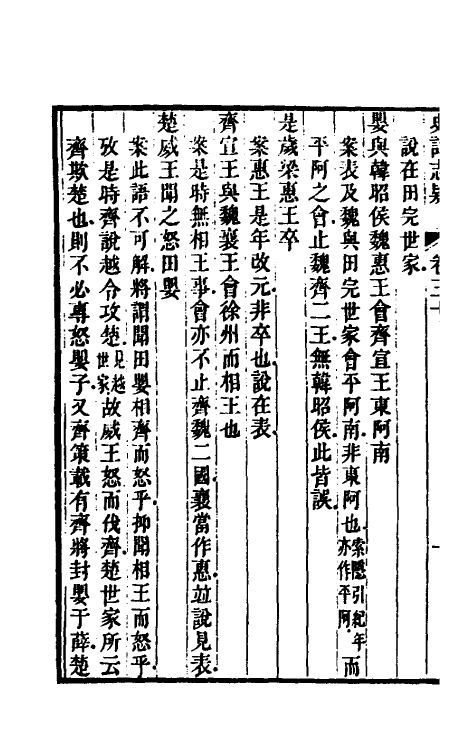 史記志疑 卷三十 一
說在田完世家
嬰與韓昭侯魏惠王會齊宣王東阿南
案表及魏與田完世家會平阿南非東阿也索隱引紀年亦作平阿而
平阿之會止魏齊二王無韓昭侯此皆誤
是歲梁惠王卒
案惠王是年改元非卒也說在表
齊宣王與魏襄王會徐州而相王也
案是時無相王事會亦不止齊魏二國襄當作惠並說見表
楚威王聞之怒田嬰
案此語不可解將謂聞田嬰相齊而怒乎抑聞相王而怒乎
攷是時齊說越令攻楚見越世家故威王怒而伐齊楚世家所云
齊欺楚也則不必專怒嬰子又齊策載有齊將封嬰于薛楚